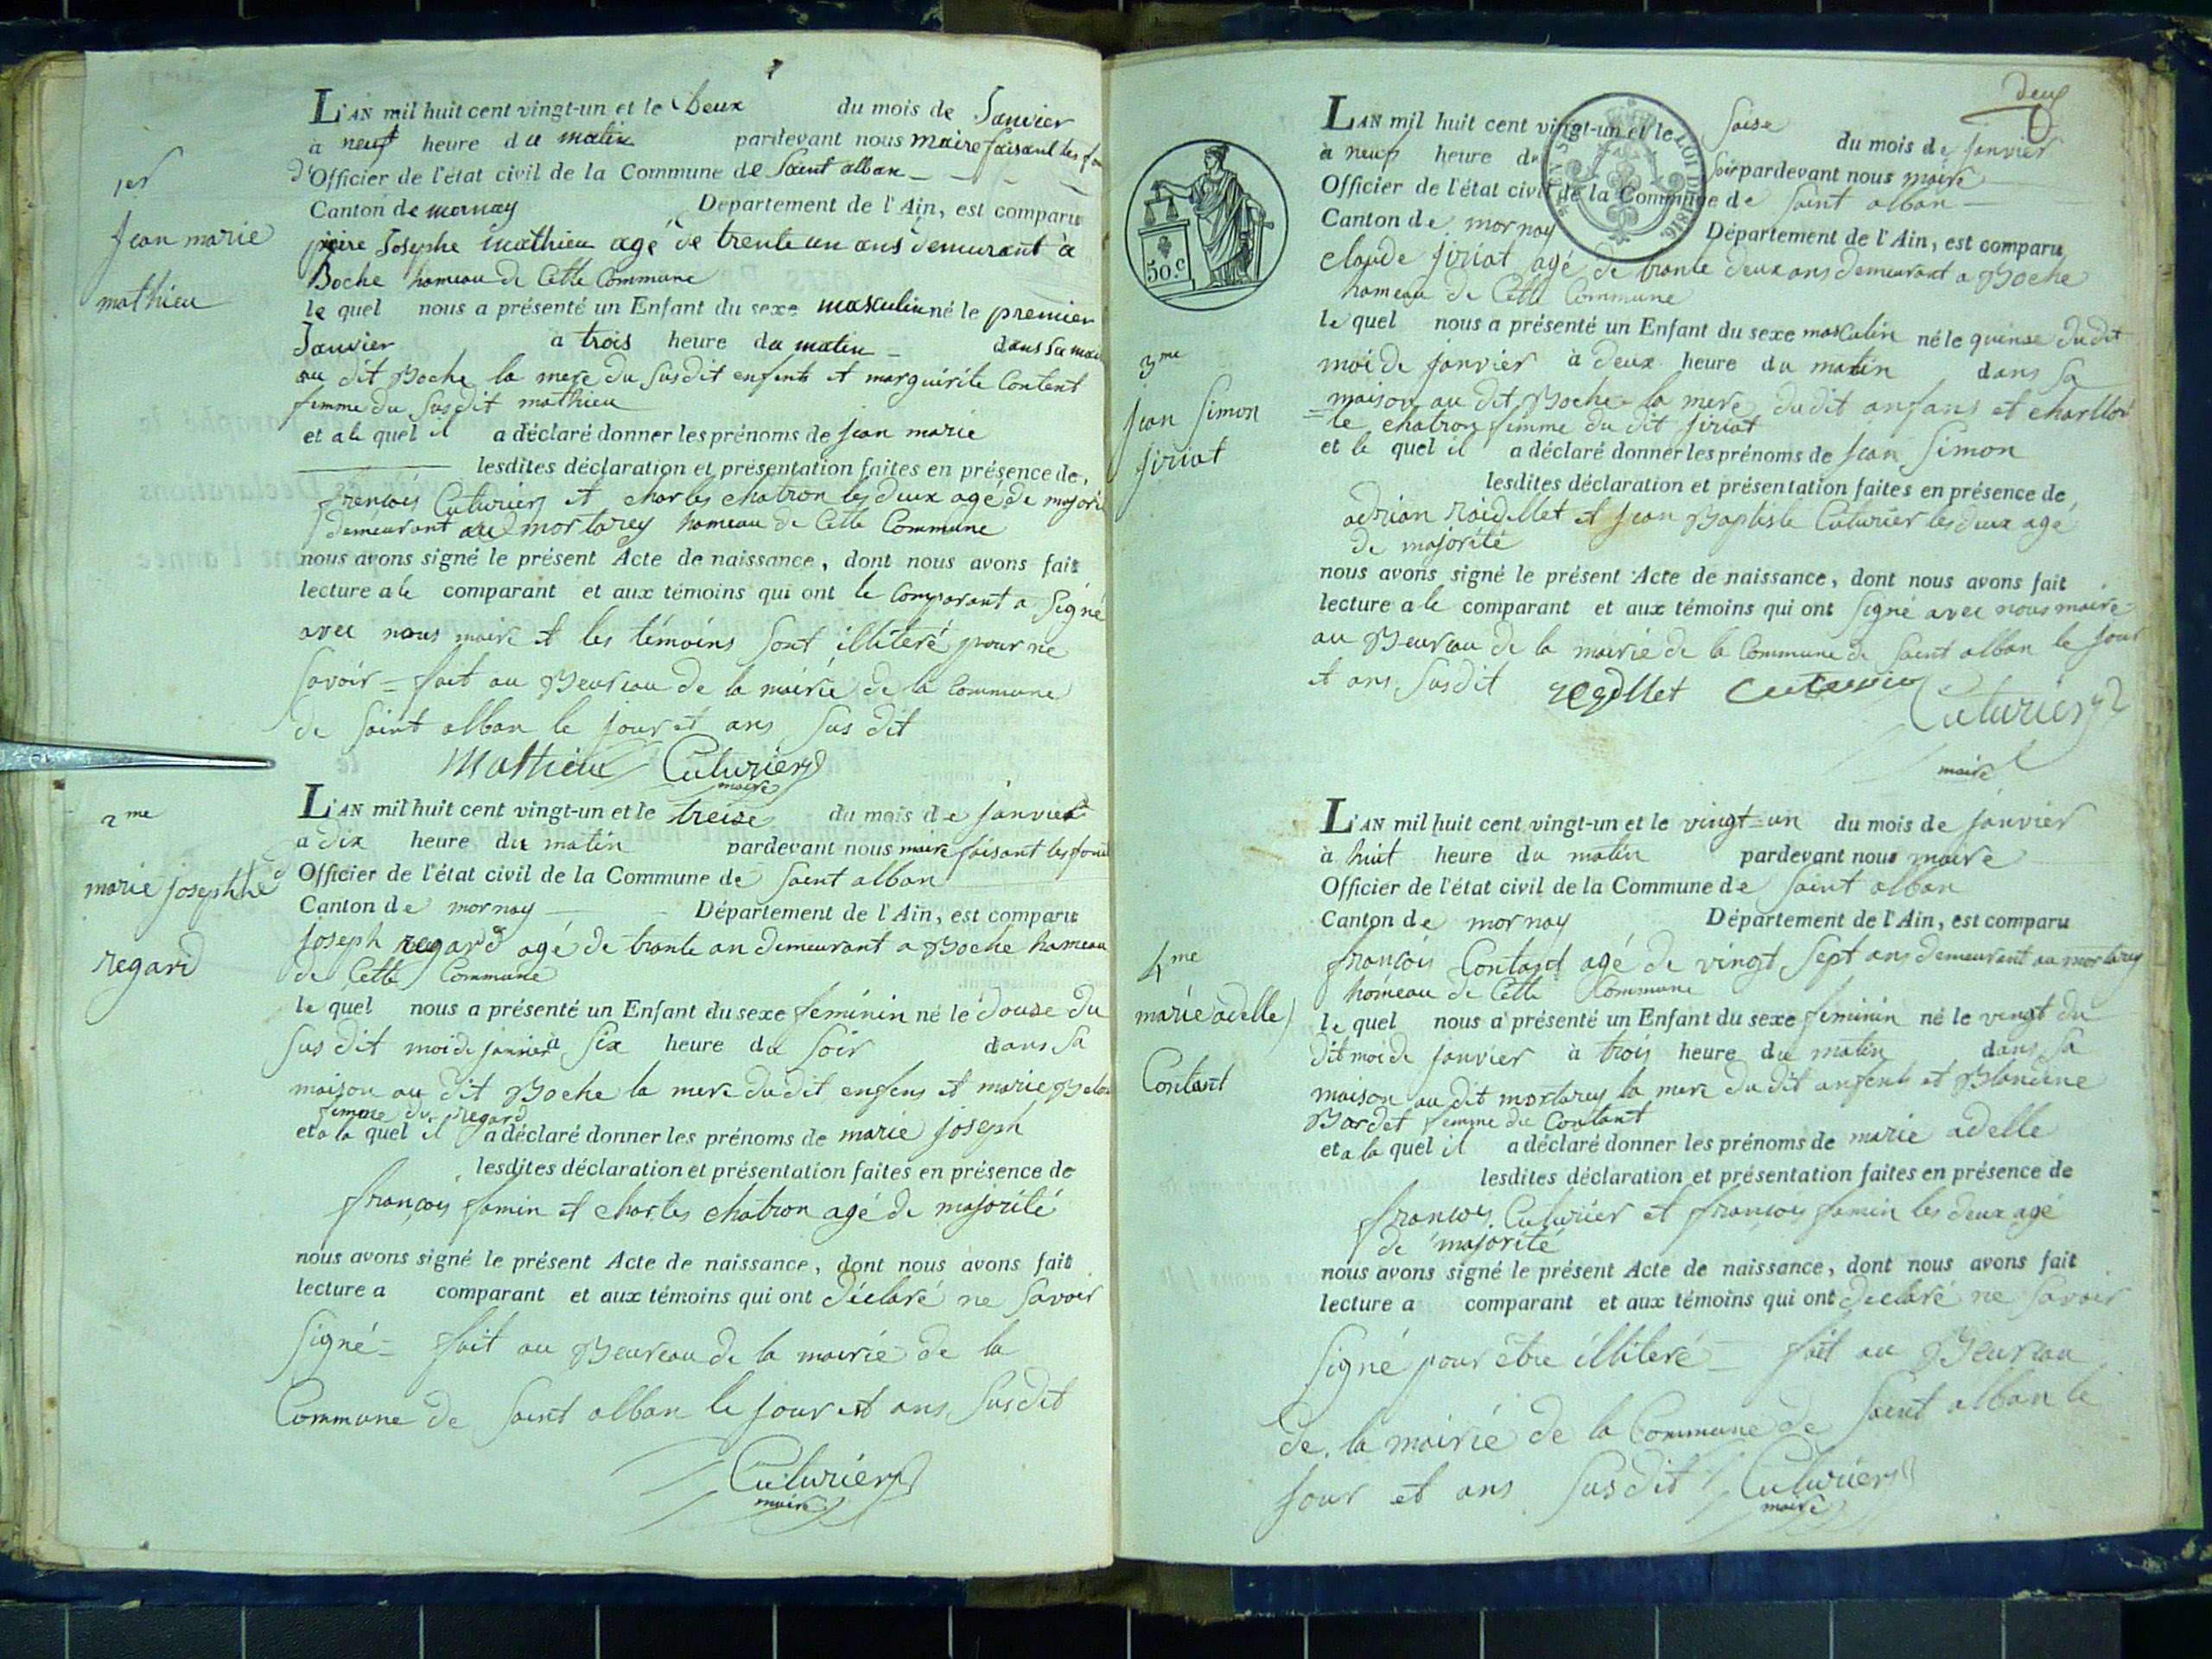 1er
jean marie
mathieu
L'AN mil huit cent vingt-un et le Deux du mois de Janvier
a neuf heure du matin pardevant nous maire faisant les
d'Officier de l'état civil de la Commune de Saint alban
Canton de mornay Département de l'Ain, est comparu
piere Josephe mathieu agé de trente un ans demeurant à
Boche hameau de Cette Commune
le quel nous a présenté un Enfant du sexe masculin né le premier
Janvier a trois heure du matin dans sa
au dit Boche la mere du susdit enfents et marguirite Content
femme du susdit mathieu
et a le quel il a déclaré donner les prénoms de jean marie
lesdites déclaration et présentation faites en présence de
francois Cuturier et charles chatron les deux agé de
demeurant au mortarey hameau de Cette Commune
nous avons signé le présent Acte de naissance, dont nous avons fait
lecture a le comparant et aux témoins qui ont le Comparant a Signé
avec nous maire et les témoins Sont illiteré pour ne
Savoir = fait au Beureau de la mairie de la Commune
de Saint alban le jour et ans Sus dit
Mathieu Cuturier
maire
2me
marie josephte
regard
L'AN mil huit cent vingt-un et le treize du mois de janvier
a dix heure du matin pardevant nous maire faisant les
Officier de l'état civil de la Commune de Saint alban
Canton de mornay Département de l'Ain, est comparu
joseph regard agé de trante an demeurant a Boche hameau
de Cette Commune
le quel nous a présenté un Enfant du sexe féminin né le douze du
Sus dit moi de janvier à Six heure du Soir dans Sa
maison au dit Boche la mere dudit enfens et marie
femme du regard
et a la quel il a déclaré donner les prénoms de marie joseph
lesdites déclaration et présentation faites en présence de
françois famin et charles chatron agé de majorité
nous avons signé le présent Acte de naissance, dont nous avons fait
lecture a comparant et aux témoins qui ont déclaré ne Savoir
Signé = fait au Beureau de la mairie de la
Commune de Saint alban le jour et ans Susdit
Cuturier
maire
deux
50.c
LOI DE 1816.
3me
jean Simon
jiriat
L'AN mil huit cent vingt-un et le Saise du mois de janvier
à neuf heure du Soir pardevant nous maire
Officier de l'état civil de la Commune de Saint alban
Canton de mornay Département de l'Ain, est comparu
claude jiriat agé de trante deux ans demeurant a Boche
hameau de Cette Commune
le quel nous a présenté un Enfant du sexe masculin né le quinse dudit
moi de janvier à deux heure du matin dans Sa
maison au dit Boche la mere du dit anfans et charllo
=te chatron femme du dit jiriat
et le quel il a déclaré donner les prénoms de jean Simon
lesdites déclaration et présentation faites en présence de
adrian raidellet et jean Baptiste Cuturier les deux agé
de majorité
nous avons signé le présent Acte de naissance, dont nous avons fait
lecture a le comparant et aux témoins qui ont Signé avec nous maire
au Beureau de la mairie de la Commune de Saint alban le jour
et ans Susdit Cuturier
maire
4me
marie adelle
Contant
L'AN mil huit cent vingt-un et le vingt-un du mois de janvier
à huit heure du matin pardevant nous maire
Officier de l'état civil de la Commune de Saint alban
Canton de mornay Département de l'Ain, est comparu
françois Contant agé de vingt Sept ans demeurant au mortarey
hameau de Cette Commune
le quel nous a présenté un Enfant du sexe féminin né le vingt du
dit moi de janvier à trois heure du matin dans Sa
maison au dit mortarey la mere du dit anfent et Blandine
Bardet femme du Contant
et a la quel il a déclaré donner les prénoms de marie adelle
lesdites déclaration et présentation faites en présence de
françois Cuturier et françois famin les deux agé
de majorité
nous avons signé le présent Acte de naissance, dont nous avons fait
lecture a comparant et aux témoins qui ont declaré ne Savoir
Signé pour être illiteré = fait au Beureau
de la mairie de la Commune de Saint alban le
jour et ans Susdit Cuturier
maire